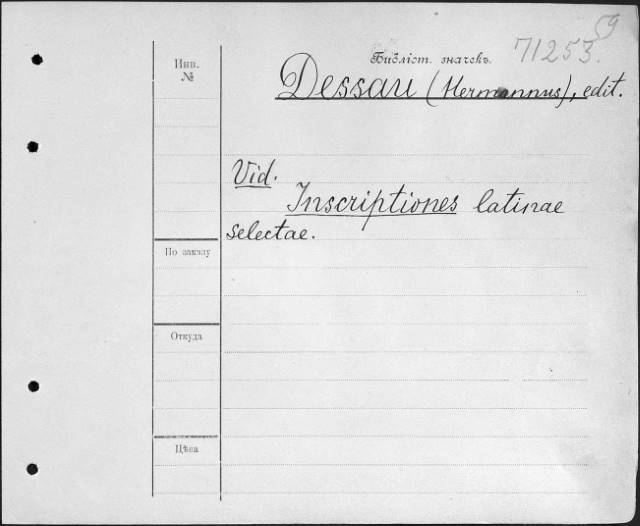 59
Библіот. значекъ.
71253.
Инв.
№
Dessau (Hermannus), edit.
Vid.
Inscriptiones latinae
selectae.
По заказу
Откуда
Цѣна